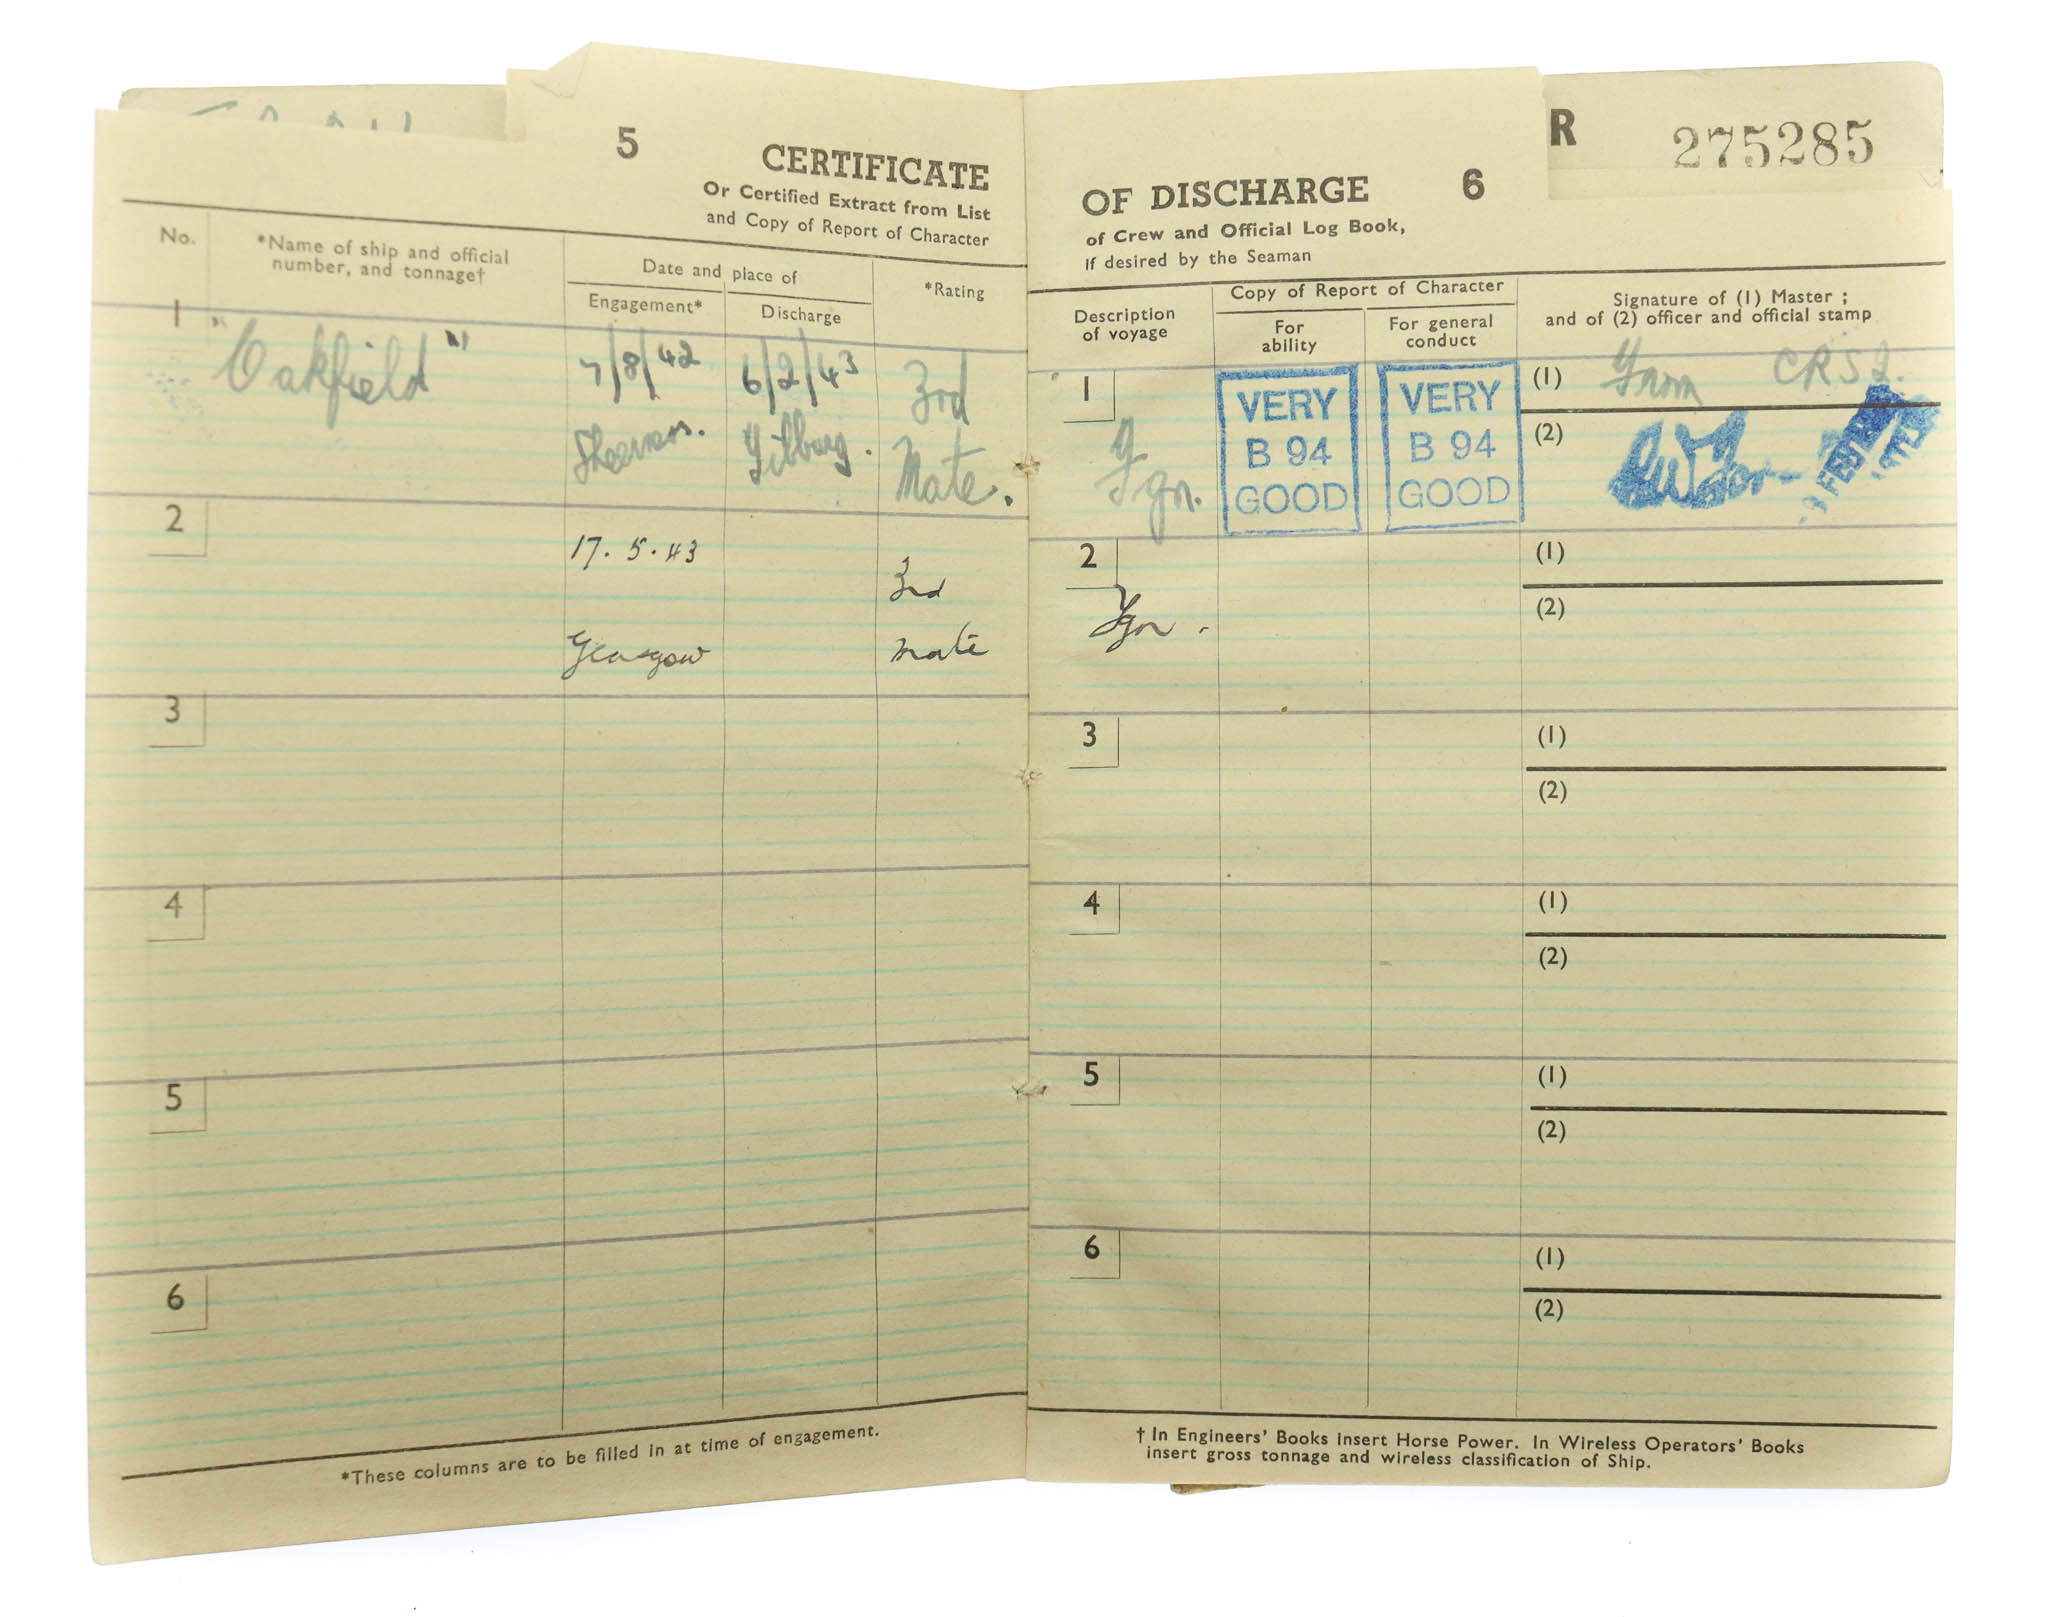 5
CERTIFICATE
Or Certified Extract from List
and Copy of Report of Character
No.
*Name of ship and official
number, and tonnage†
Date and place of
Engagement*
Discharge
*Rating
1
"Oakfield"
7/8/42
6/2/43
3rd
Sheerness.
Tilbury.
Mate.
2
17. 5. 43
3rd
Glasgow
mate
3
4
5
6
*These columns are to be filled in at time of engagement.
R 275285
OF DISCHARGE 6
of Crew and Official Log Book,
if desired by the Seaman
Description
of voyage
Copy of Report of Character
For
ability
For general
conduct
Signature of (1) Master ;
and of (2) officer and official stamp
1
Fgn.
VERY
B 94
GOOD
VERY
B 94
GOOD
(1) From CRS2.
(2)
2
Fgn.
(1)
(2)
3
(1)
(2)
4
(1)
(2)
5
(1)
(2)
6
(1)
(2)
† In Engineers' Books insert Horse Power. In Wireless Operators' Books
insert gross tonnage and wireless classification of Ship.